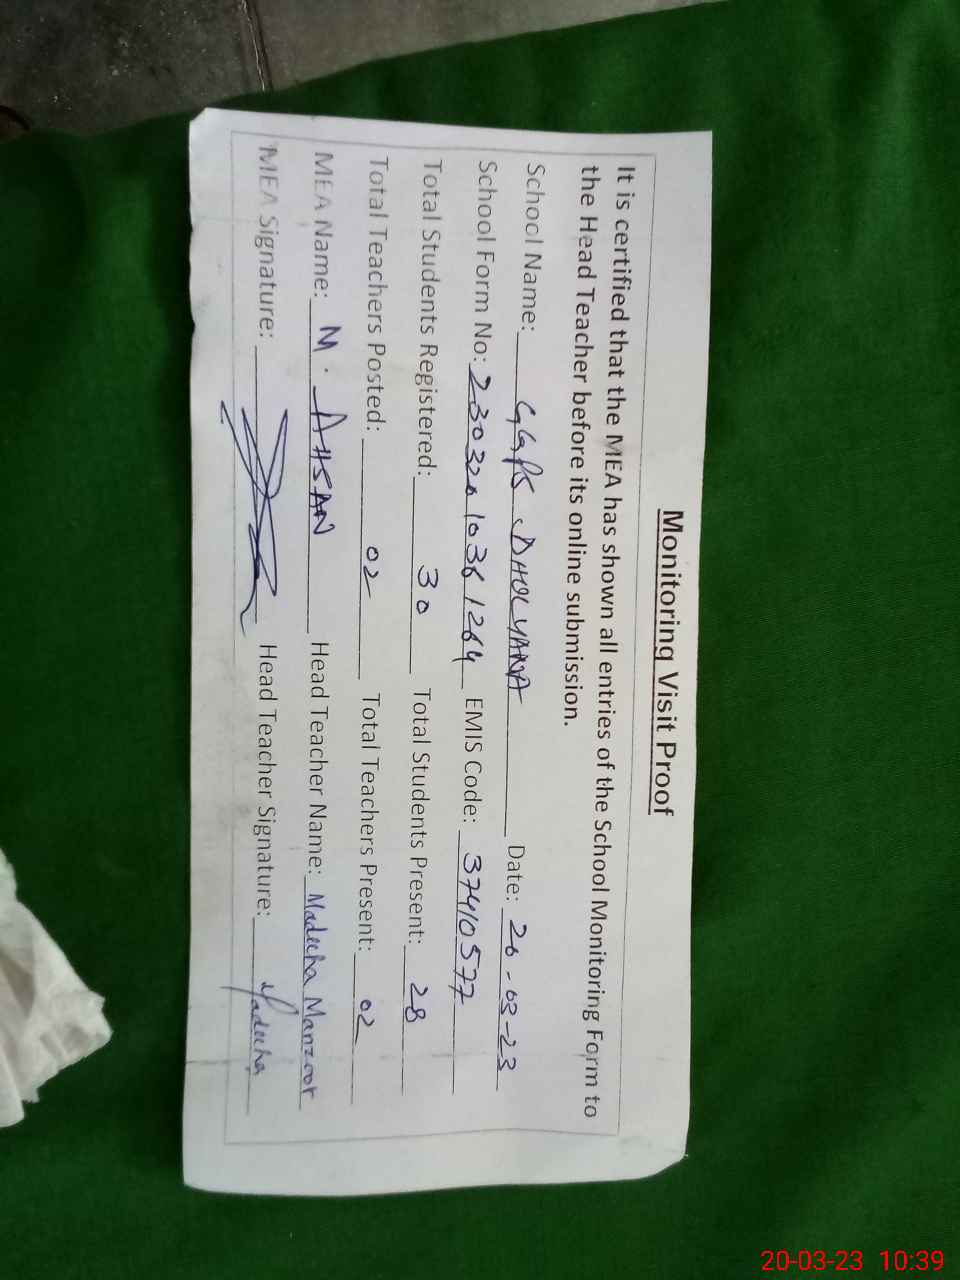 Monitoring Visit Proof
It is certified that the MEA has shown all entries of the School Monitoring Form to
the Head Teacher before its online submission.
School Name: GGPS DHOLYANA Date: 20-03-23
School Form No: 23032010361264 EMIS Code: 37410577
Total Students Registered: 30 Total Students Present: 28
Total Teachers Posted: 02 Total Teachers Present: 02
MEA Name: M. AHSAN Head Teacher Name: Madeeha Manzoor
MEA Signature: Head Teacher Signature: Madeeha
20-03-23 10:39